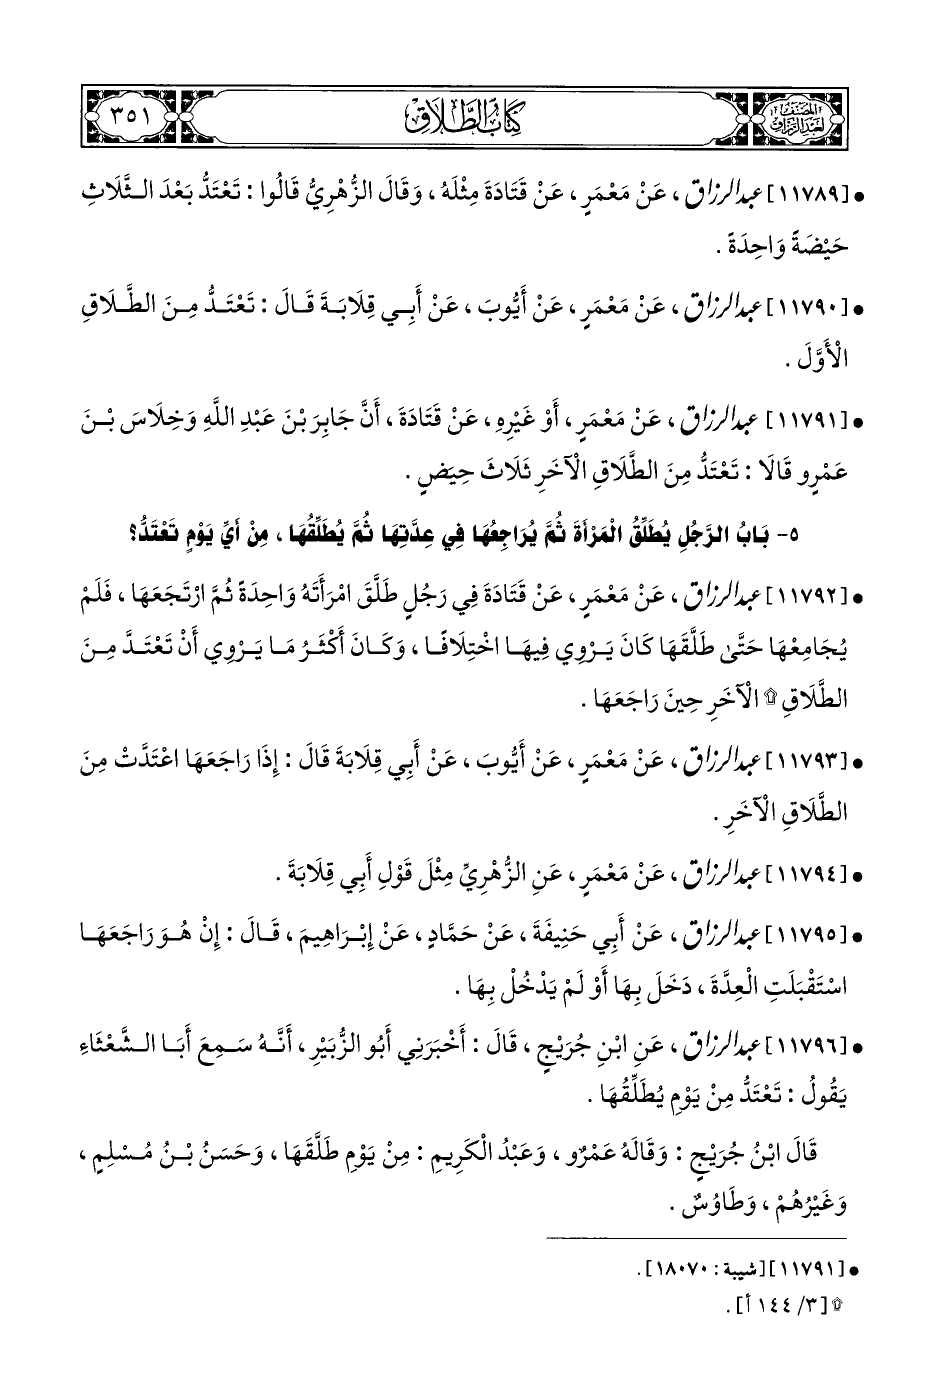 المصنف لعبد الرزاق
كتاب الطلاق
٣٥١
• [١١٧٨٩] عبد الرزاق ، عَنْ مَعْمَرٍ ، عَنْ قَتَادَةَ مِثْلَهُ ، وَقَالَ الزُّهْرِيُّ قَالُوا : تَعْتَدُّ بَعْدَ الثَّلَاثِ
حَيْضَةً وَاحِدَةً .
• [١١٧٩٠] عبد الرزاق ، عَنْ مَعْمَرٍ ، عَنْ أَيُّوبَ ، عَنْ أَبِي قِلَابَةَ قَالَ : تَعْتَدُّ مِنَ الطَّلَاقِ
الْأَوَّلَ .
• [١١٧٩١] عبد الرزاق ، عَنْ مَعْمَرٍ ، أَوْ غَيْرِهِ ، عَنْ قَتَادَةَ ، أَنَّ جَابِرَ بْنَ عَبْدِ اللَّهِ وَخِلَاسَ بْنَ
عَمْرٍو قَالَا : تَعْتَدُّ مِنَ الطَّلَاقِ الْآخَرِ ثَلَاثَ حِيَضٍ .
٥- بَابُ الرَّجُلِ يُطَلِّقُ الْمَرْأَةَ ثُمَّ يُرَاجِعُهَا فِي عِدَّتِهَا ثُمَّ يُطَلِّقُهَا ، مِنْ أَيِّ يَوْمٍ تَعْتَدُّ؟
• [١١٧٩٢] عبد الرزاق ، عَنْ مَعْمَرٍ ، عَنْ قَتَادَةَ فِي رَجُلٍ طَلَّقَ امْرَأَتَهُ وَاحِدَةً ثُمَّ ارْتَجَعَهَا ، فَلَمْ
يُجَامِعْهَا حَتَّى طَلَّقَهَا كَانَ يَرْوِي فِيهَا اخْتِلَافًا ، وَكَانَ أَكْثَرُ مَا يَرْوِي أَنْ تَعْتَدَّ مِنَ
الطَّلَاقِ ۩ الْآخَرِ حِينَ رَاجَعَهَا .
• [١١٧٩٣] عبد الرزاق ، عَنْ مَعْمَرٍ ، عَنْ أَيُّوبَ ، عَنْ أَبِي قِلَابَةَ قَالَ : إِذَا رَاجَعَهَا اعْتَدَّتْ مِنَ
الطَّلَاقِ الْآخَرِ .
• [١١٧٩٤] عبد الرزاق ، عَنْ مَعْمَرٍ ، عَنِ الزُّهْرِيِّ مِثْلَ قَوْلِ أَبِي قِلَابَةَ .
• [١١٧٩٥] عبد الرزاق ، عَنْ أَبِي حَنِيفَةَ ، عَنْ حَمَّادٍ ، عَنْ إِبْرَاهِيمَ ، قَالَ : إِنْ هُوَ رَاجَعَهَا
اسْتَقْبَلَتِ الْعِدَّةَ ، دَخَلَ بِهَا أَوْ لَمْ يَدْخُلْ بِهَا .
• [١١٧٩٦] عبد الرزاق ، عَنِ ابْنِ جُرَيْجٍ ، قَالَ : أَخْبَرَنِي أَبُو الزُّبَيْرِ ، أَنَّهُ سَمِعَ أَبَا الشَّعْثَاءِ
يَقُولُ : تَعْتَدُّ مِنْ يَوْمِ يُطَلِّقُهَا .
قَالَ ابْنُ جُرَيْجٍ : وَقَالَهُ عَمْرٌو ، وَعَبْدُ الْكَرِيمِ : مِنْ يَوْمِ طَلَّقَهَا ، وَحَسَنُ بْنُ مُسْلِمٍ ،
وَغَيْرُهُمْ ، وَطَاوُسٌ .
• [١١٧٩١] [شيبة : ١٨٠٧٠] .
۩ [٣/ ١٤٤ أ] .